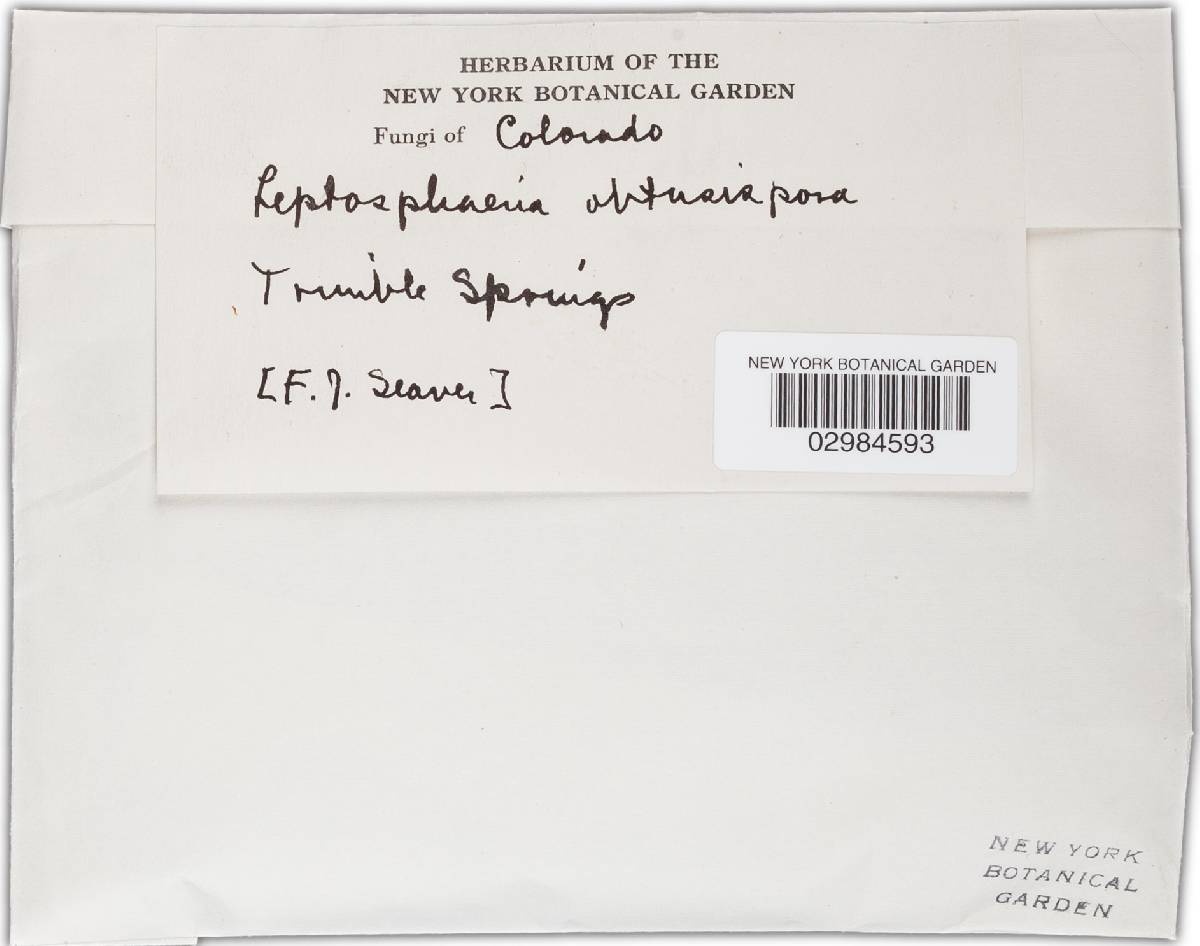 HERBARIUM OF THE
NEW YORK BOTANICAL GARDEN
Fungi of Colorado
Leptosphaeria obtusispora
Trimble Springs
[F. J. Seaver]
NEW YORK BOTANICAL GARDEN
02984593
NEW YORK
BOTANICAL
GARDEN